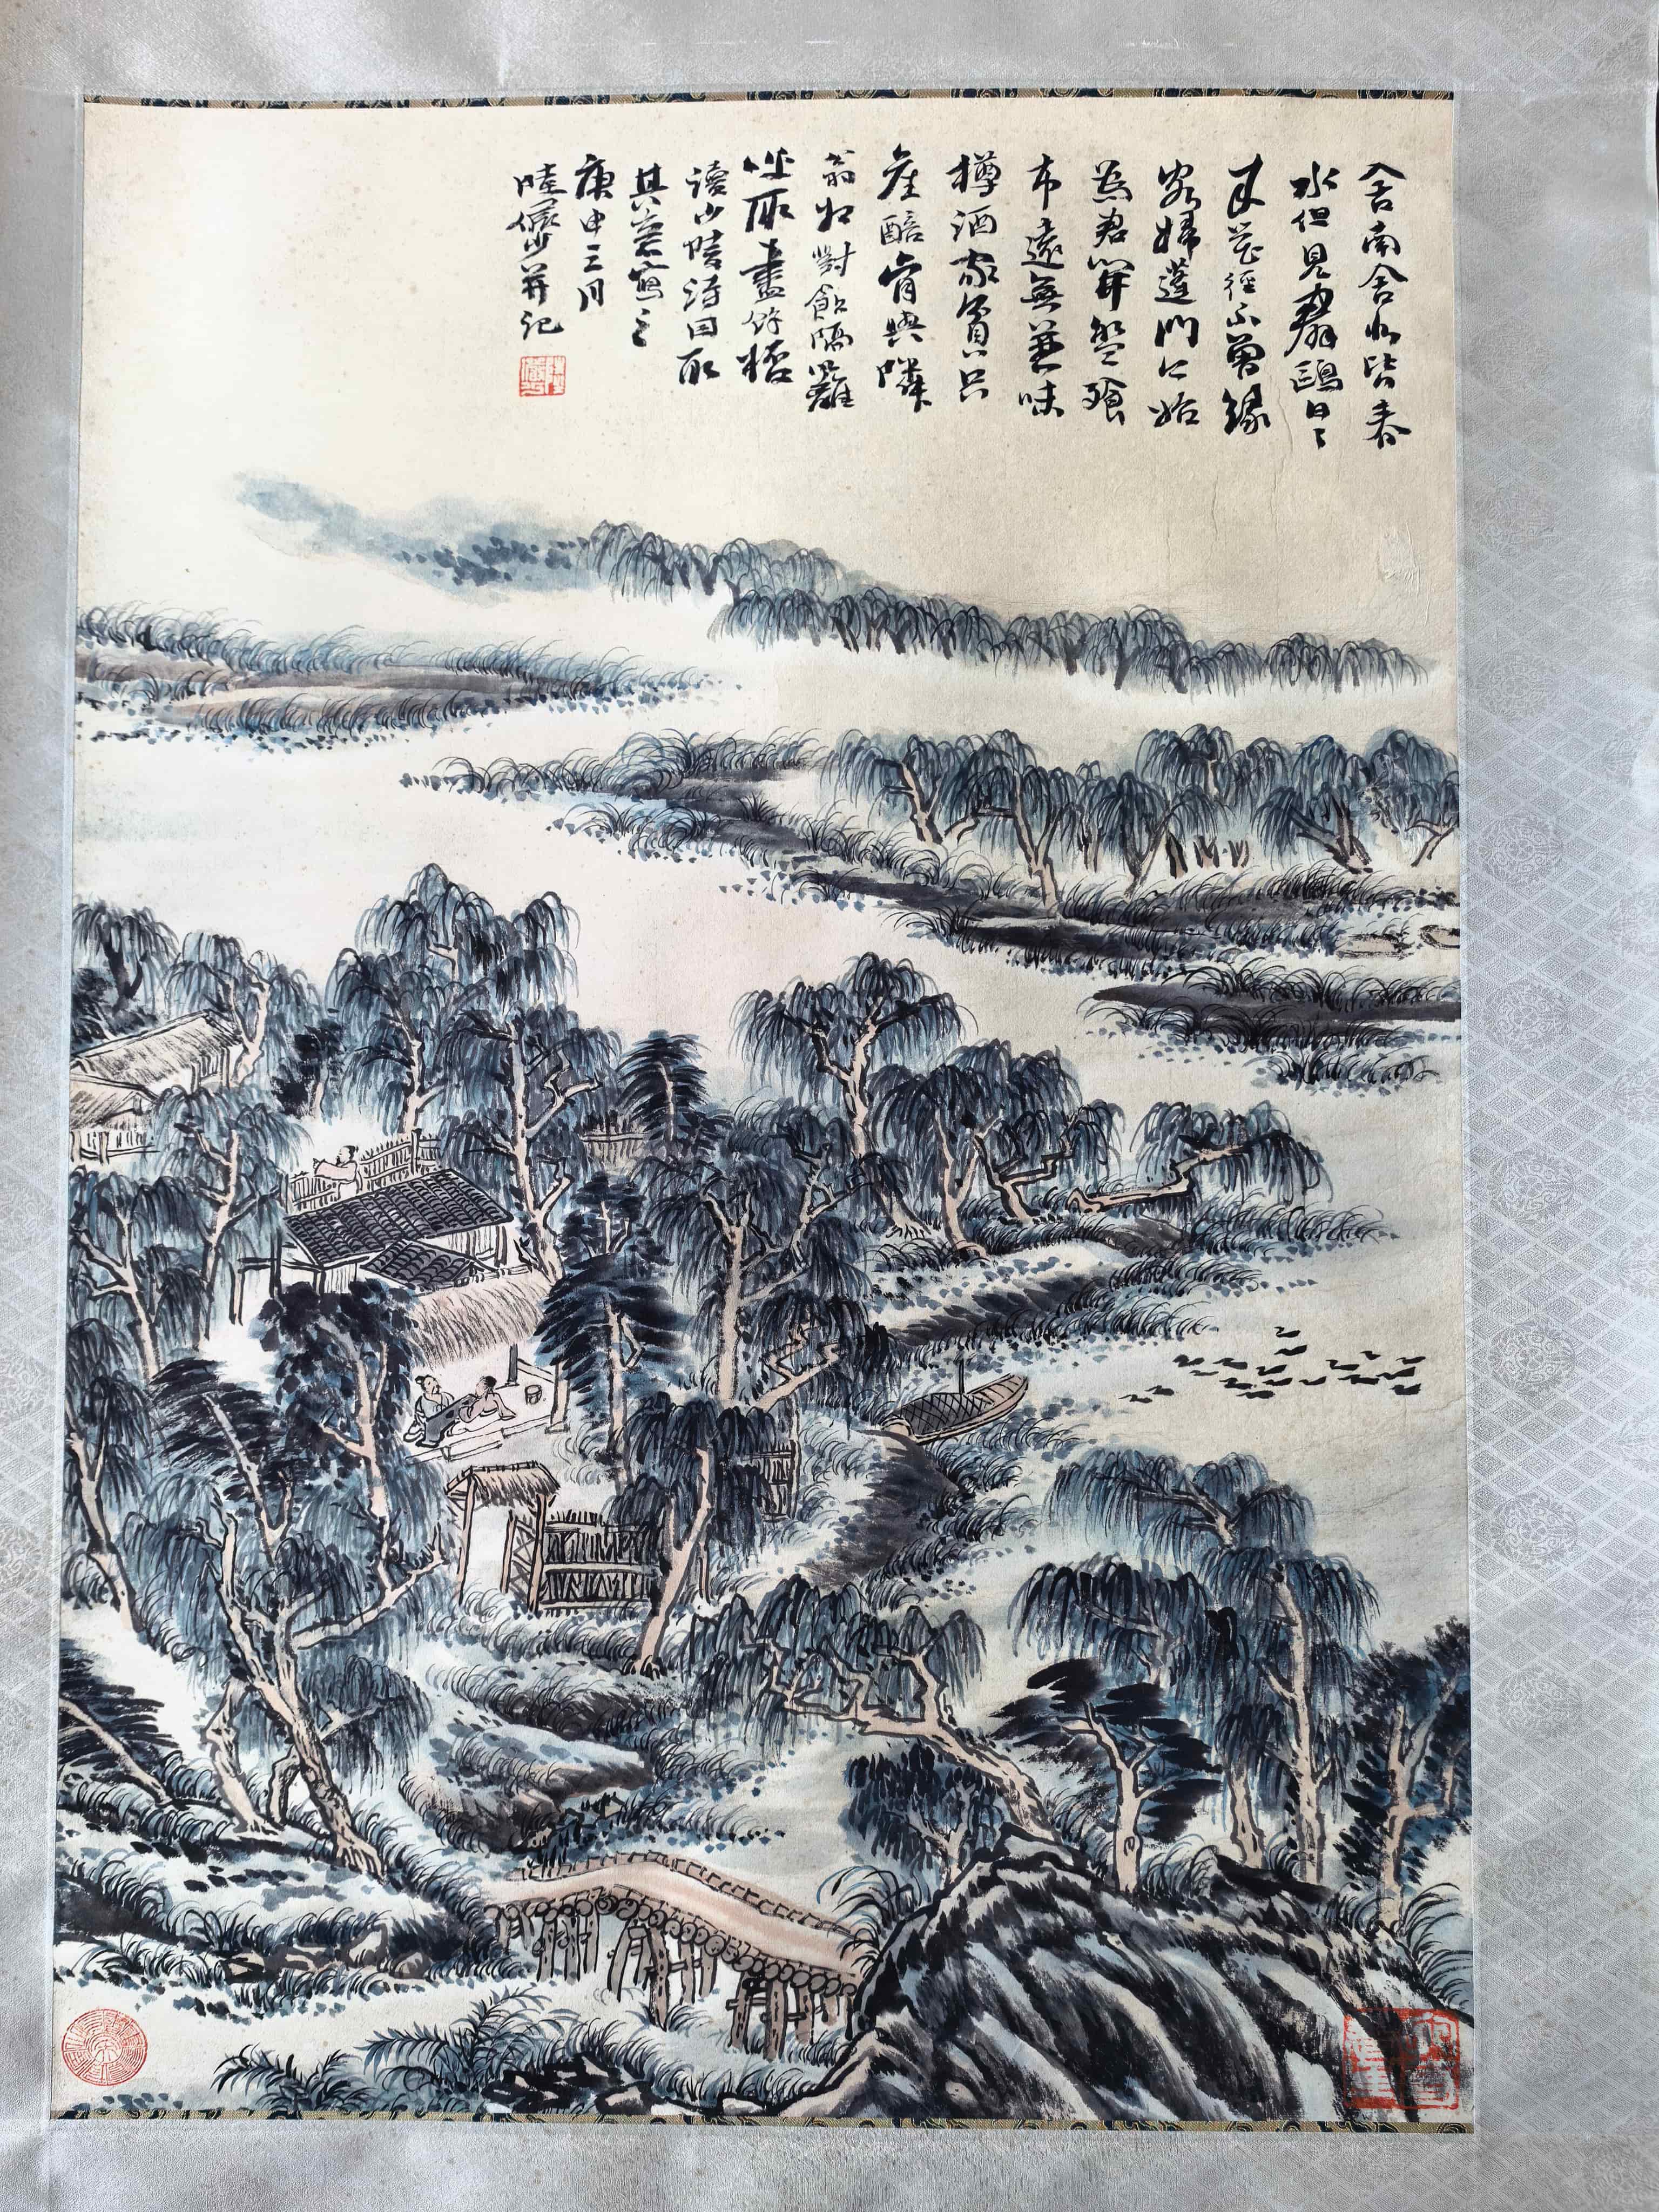 舍南舍北皆春
水但見羣鷗日〻
來花徑不曾緣
客掃蓬門今始
為君開盤飱
市遠無兼味
樽酒家貧只
舊醅肯與隣
翁相對飲隔籬
呼取盡餘桮
讀少陵詩因取
其意寫之
庚申三月
陸儼少并記